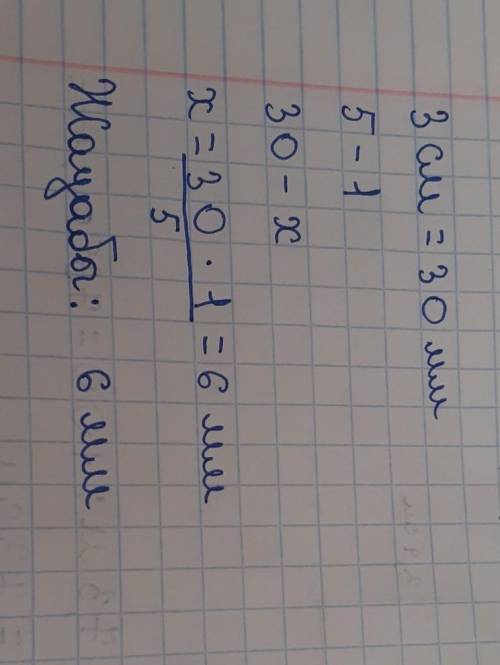 3 см = 30 мм
5 - 1
30 - х
х = 30 · 1 / 5 = 6 мм
Жауабы: 6 мм